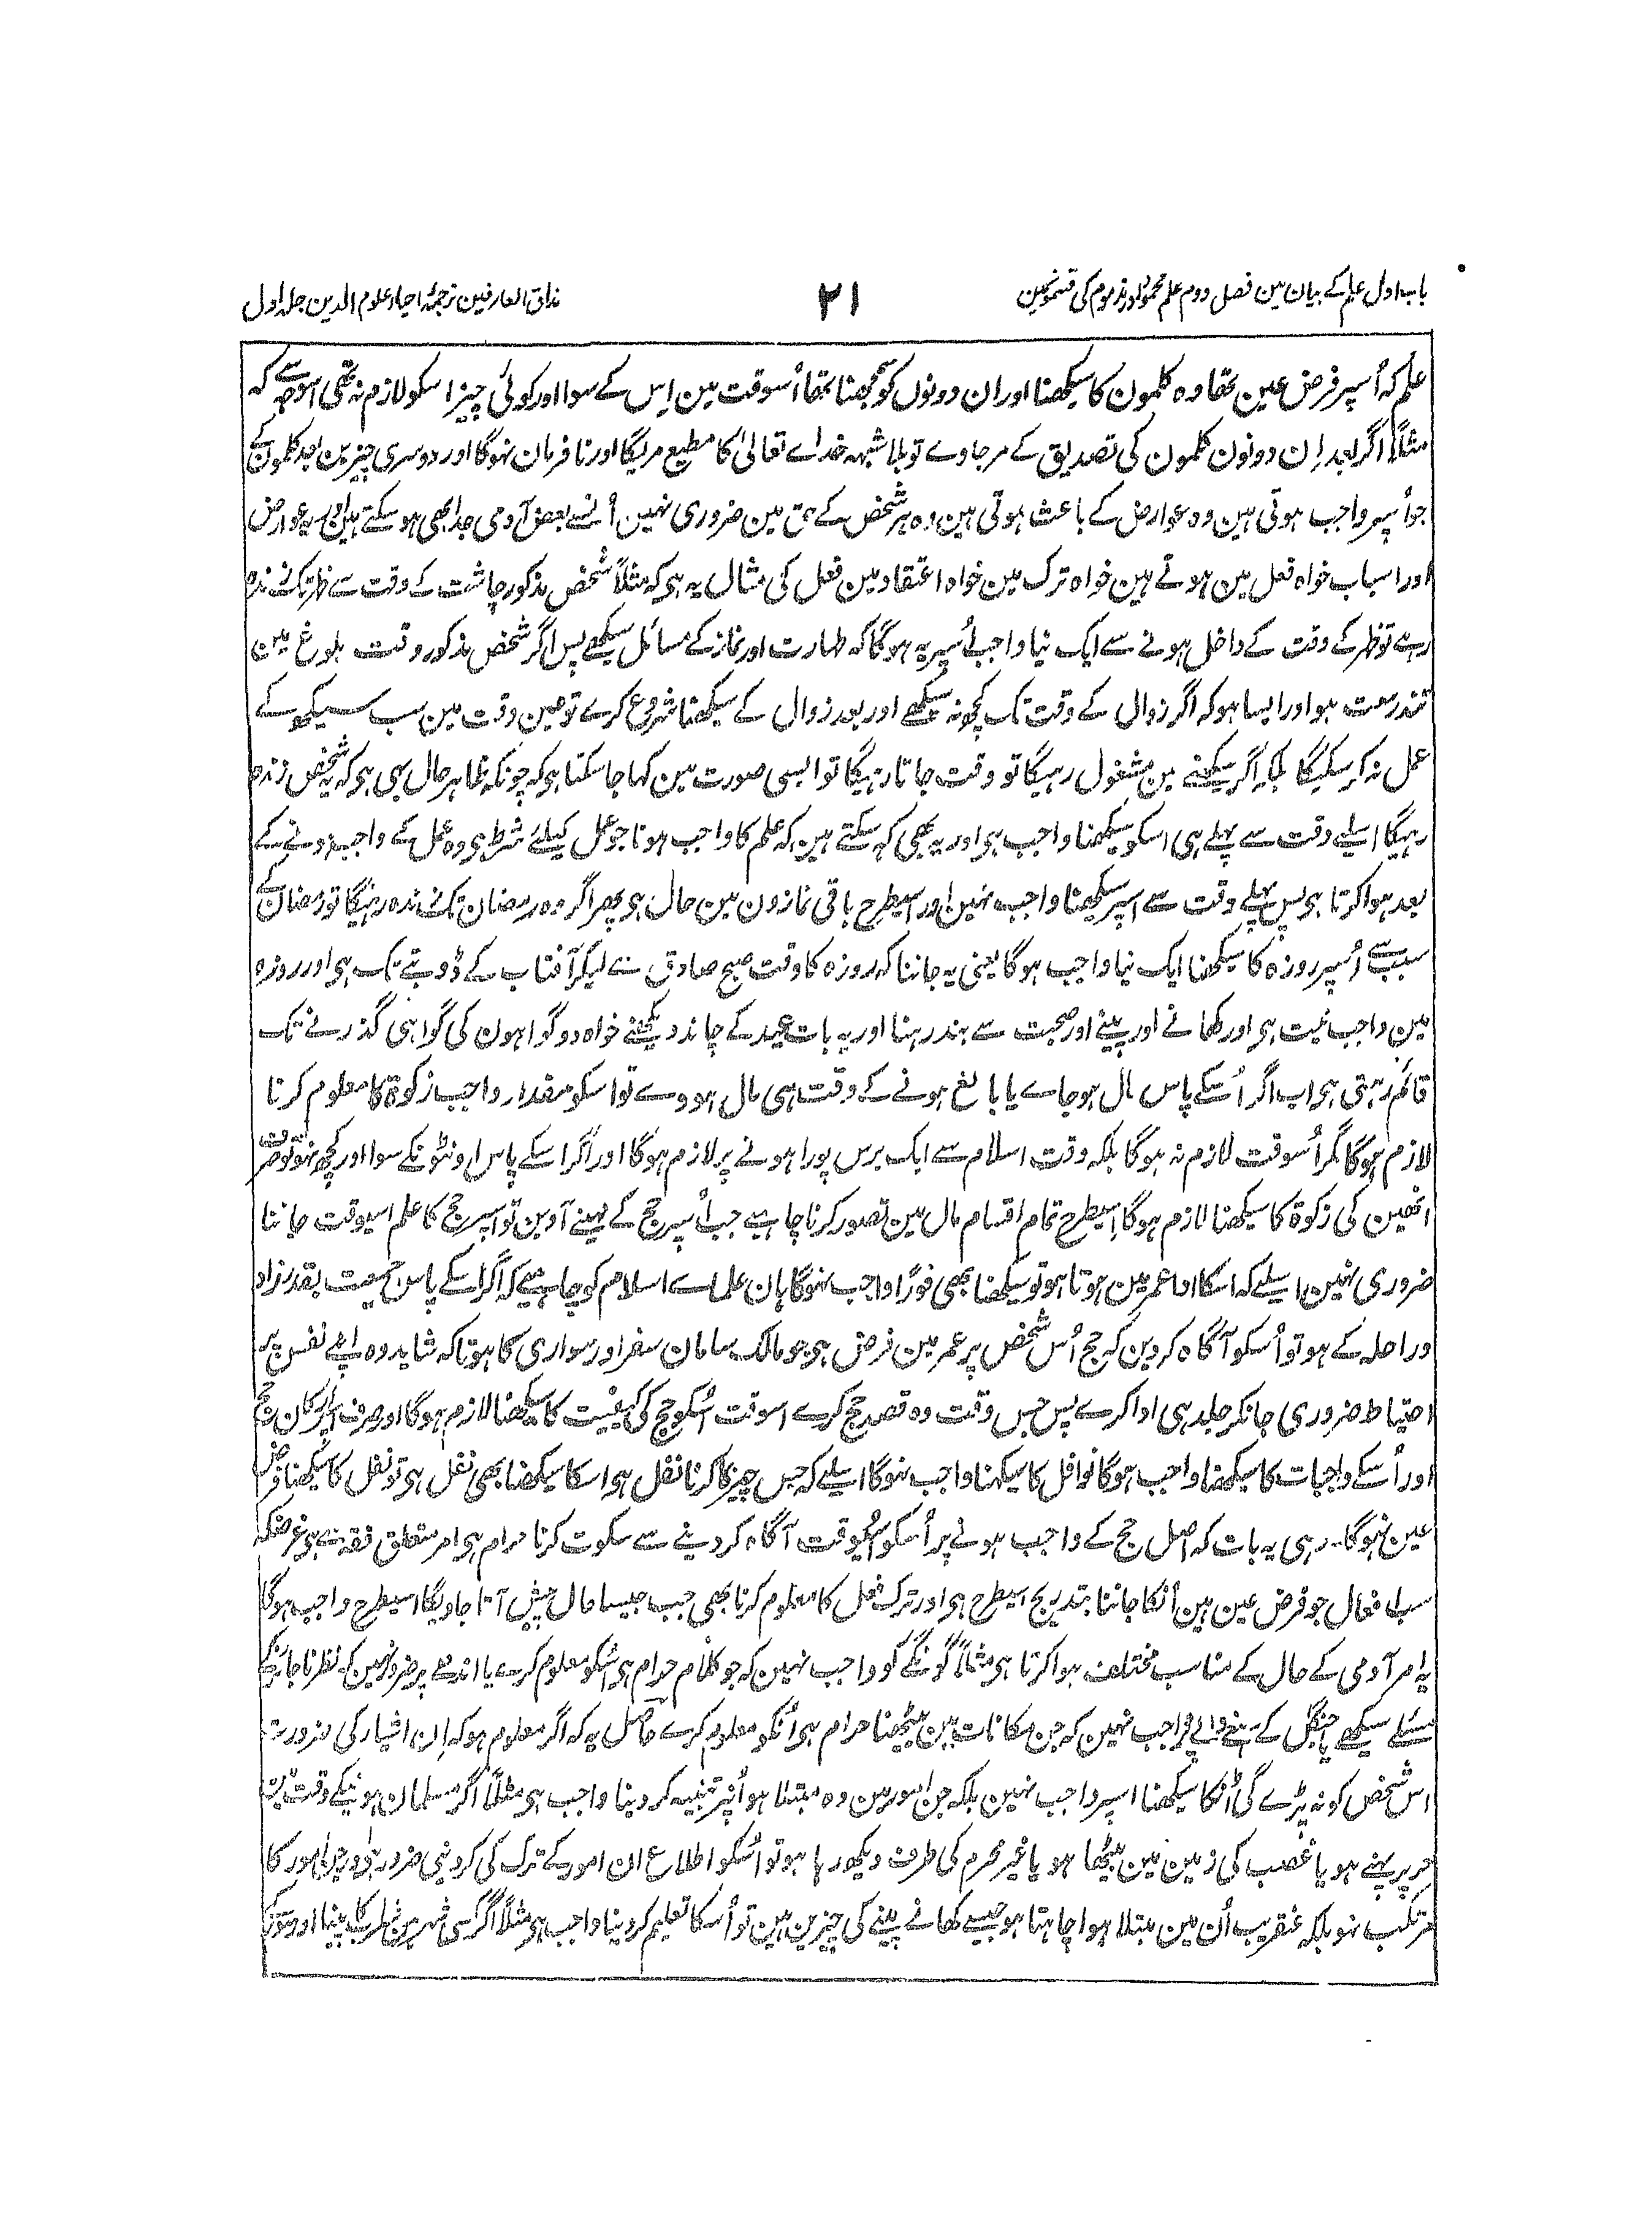 باب اول علم کے بیان مین فصل دوم علم محمود اور مذموم کی قسمونمین
۲۱
مذاق العارفین ترجمۂ احیاء علوم الدین جلد اول
علم کہ اُسپر فرض عین تھا وہ کلمون کا سیکھنا اور ان دونوں کو سمجھنا تھا اُسوقت مین اِس کے سوا اور کوئی چیز اسکو لازم نہ تھی اسوجہ سے کہ
مثلاً اگر بعد اِن دونون کلمون کی تصدیق کے مرجاوے تو بلا شبہہ خداے تعالیٰ کا مطیع مریگا اور نافرمان نہوگا اور دوسری چیزین بعد کلمون کے
جو اُسپر واجب ہوتی ہین وہ عوارض کے باعث ہوتی ہین وہ ہر شخص کے حق مین ضروری نہین اُنسے بعض آدمی جدا بھی ہو سکتے ہین اور یہ عوارض
اور اسباب خواہ فعل مین ہوتے ہین خواہ ترک مین خواہ اعتقاد مین فعل کی مثال یہ ہی کہ مثلاً شخص مذکور چاشت کے وقت سے ظہر تک زندہ
رہے تو ظہر کے وقت کے داخل ہونے سے ایک نیا واجب اُسپر یہ ہوگا کہ طہارت اور نماز کے مسائل سیکھے پس اگر شخص مذکور وقت بلوغ مین
تندرست ہو اور ایسا ہو کہ اگر زوال کے وقت تک کچھ نہ سیکھے اور بعد زوال کے سیکھنا شروع کرے تو عین وقت مین سب سیکھ کے
عمل نہ کر سکیگا بلکہ اگر سیکھنے مین مشغول رہیگا تو وقت جاتا رہیگا تو ایسی صورت مین کہا جا سکتا ہی کہ چونکہ ظاہر حال یہی ہی کہ یہ شخص زندہ
رہیگا اسلیے وقت سے پہلے ہی اسکو سیکھنا واجب ہی اور یہ بھی کہہ سکتے ہین کہ علم کا واجب ہونا جو عمل کیلئے شرط ہی وہ عمل کے واجب ہونے کے
بعد ہوا کرتا ہی پس پہلے وقت سے اسپر سیکھنا واجب نہین اور اسیطرح باقی نمازون مین حال ہی پھر اگر وہ رمضان تک زندہ رہیگا تو رمضان کے
سبب سے اُسپر روزہ کا سیکھنا ایک نیا واجب ہوگا یعنی یہ جاننا کہ روزہ کا وقت صبح صادق سے لیکر آفتاب کے ڈوبتے تک ہی اور روزہ
مین واجب نیت ہی اور کھانے اور پینے اور صحبت سے بند رہنا اور یہ بات عید کے چاند دیکھنے خواہ دو گواہون کی گواہی گذرنے تک
قائم رہتی ہی اب اگر اُسکے پاس مال ہو جاے یا بالغ ہونے کے وقت ہی مال ہووے تو اسکو مقدار واجب زکوۃ کا معلوم کرنا
لازم ہوگا مگر اُسوقت لازم نہ ہوگا بلکہ وقت اسلام سے ایک برس پورا ہونے پر لازم ہوگا اور اگر اسکے پاس اونٹونکے سوا اور کچھ نہو تو صرف
انھین کی زکوۃ کا سیکھنا لازم ہوگا اسیطرح تمام اقسام مال مین تصور کرنا چاہیے جب اُسپر حج کے مہینے آوین تو اسپر حج کا علم اسیوقت جاننا
ضروری نہین اسلیے کہ اسکا ادا عمر مین ہوتا ہو تو سیکھنا بھی فوراً واجب نہوگا ہان علماے اسلام کو چاہیے کہ اگر اسکے پاس جمعیت بقدر زاد
وراحلہ کے ہو تو اُسکو آگاہ کر دین کہ حج اُس شخص پر عمر مین فرض ہی جو مالک سامان سفر اور سواری کا ہو تا کہ شاید وہ اپنے نفس پر
احتیاط ضروری جانکر جلد ہی ادا کرے پس جس وقت وہ قصد حج کرے اسوقت اُسکو حج کی کیفیت کا سیکھنا لازم ہوگا اور صرف اُسپر ارکان حج
اور اُسکے واجبات کا سیکھنا واجب ہوگا نوافل کا سیکھنا واجب نہوگا اسلیے کہ جس چیز کا کرنا نفل ہی اسکا سیکھنا بھی نفل ہی تو نفل کا سیکھنا فرض
عین نہوگا۔ رہی یہ بات کہ اصل حج کے واجب ہونے پر اُسکو اسیوقت آگاہ کر دینے سے سکوت کرنا حرام ہی امر متعلق فقہ سے ہی غرضکہ
سب افعال جو فرض عین ہین اُنکا جاننا بتدریج اسیطرح ہی اور ترک فعل کا معلوم کرنا بھی جب جیسا حال پیش آتا جاویگا اسیطرح واجب ہوگا
یہ امر آدمی کے حال کے مناسب مختلف ہوا کرتا ہی مثلاً گونگے کو واجب نہین کہ جو کلام حرام ہی اُسکو معلوم کرے یا اندھے پر ضرور نہین کہ نظر ناجائز کے
مسئلے سیکھے یا جنگل کے رہنے والے پر واجب نہین کہ جن مکانات مین بیٹھنا حرام ہی اُنکو معلوم کرے حاصل یہ کہ اگر معلوم ہو کہ اِن اشیا کی ضرورت
اس شخص کو نہ پڑے گی اُنکا سیکھنا اسپر واجب نہین بلکہ جن امور مین وہ مبتلا ہو اُنپر تنبیہ کر دینا واجب ہی مثلاً اگر مسلمان ہونیکے وقت مین
حریر پہنے ہو یا غصب کی زمین مین بیٹھا ہو یا غیر محرم کی طرف دیکھ رہا ہو تو اُسکو اطلاع ان امور کے ترک کی کر دینی ضرور ہی اور جن امور کا
مرتکب نہو بلکہ عنقریب اُن مین مبتلا ہوا چاہتا ہو جیسے کھانے پینے کی چیزین ہین تو اُسکا تعلیم کر دینا واجب ہی مثلاً اگر کسی شہر مین شراب پینا اور سور کا